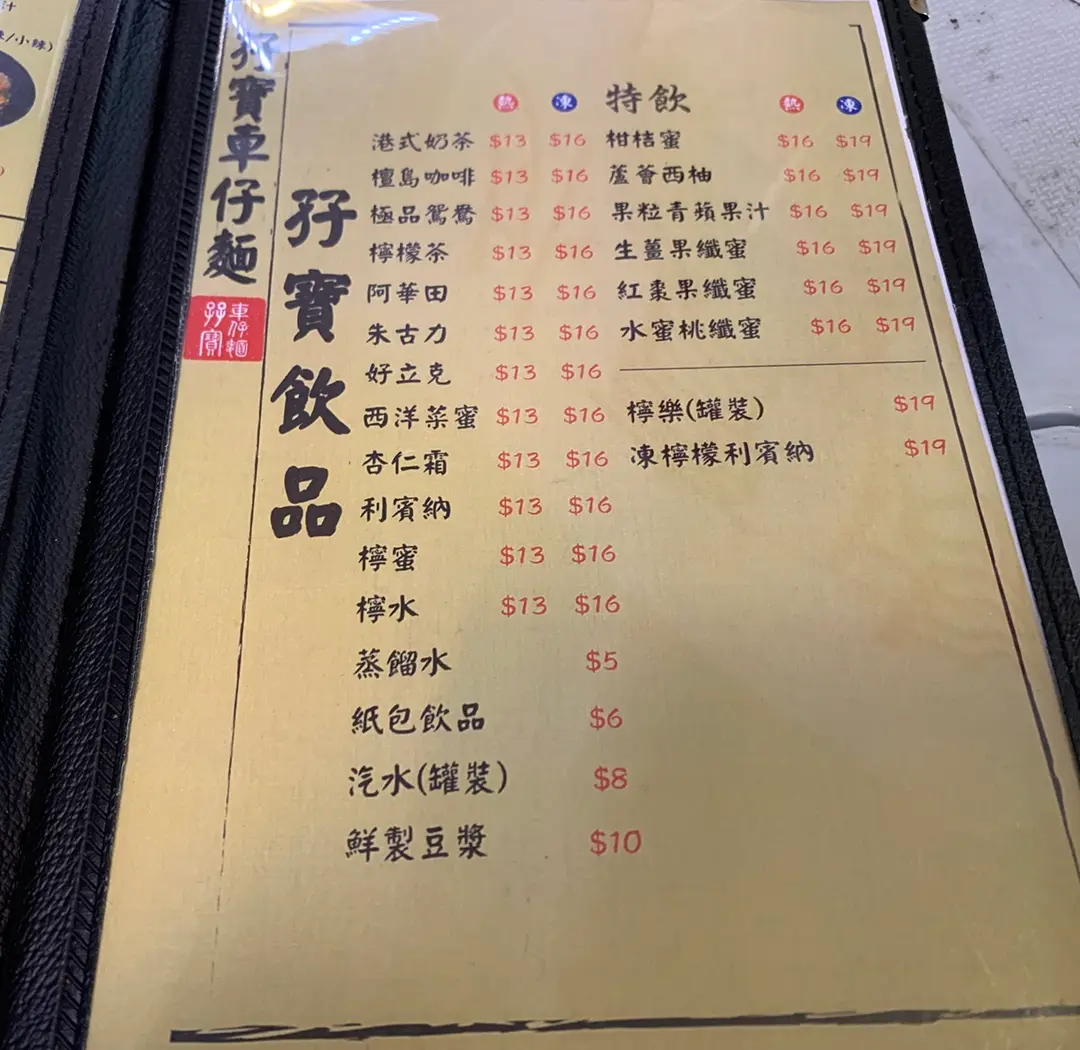 汁
/小辣)
孖寶車仔麵
孖寶
車仔麵
孖寶飲品
熱 凍
港式奶茶 $13 $16
檀島咖啡 $13 $16
極品鴛鴦 $13 $16
檸檬茶 $13 $16
阿華田 $13 $16
朱古力 $13 $16
好立克 $13 $16
西洋菜蜜 $13 $16
杏仁霜 $13 $16
利賓納 $13 $16
檸蜜 $13 $16
檸水 $13 $16
蒸餾水 $5
紙包飲品 $6
汽水(罐裝) $8
鮮製豆漿 $10
特飲 熱 凍
柑桔蜜 $16 $19
蘆薈西柚 $16 $19
果粒青蘋果汁 $16 $19
生薑果纖蜜 $16 $19
紅棗果纖蜜 $16 $19
水蜜桃纖蜜 $16 $19
檸樂(罐裝) $19
凍檸檬利賓納 $19